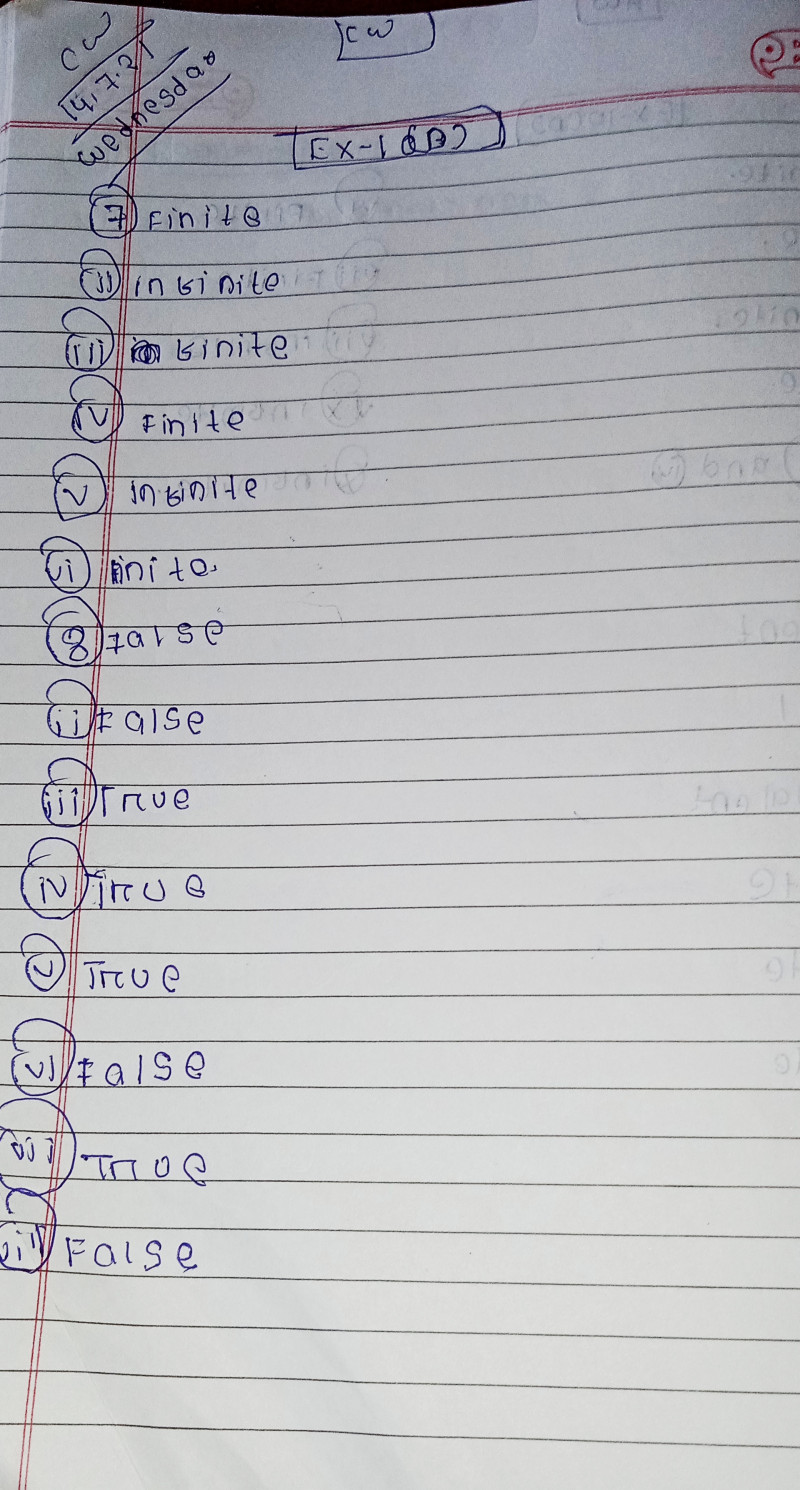 CW
CW
14.7.21
Wednesday
7 Finite
ii infinite
iii finite
iv Finite
v infinite
vi finite.
8 False
ii False
iii True
iv True
v True
vi False
vii True
viii False